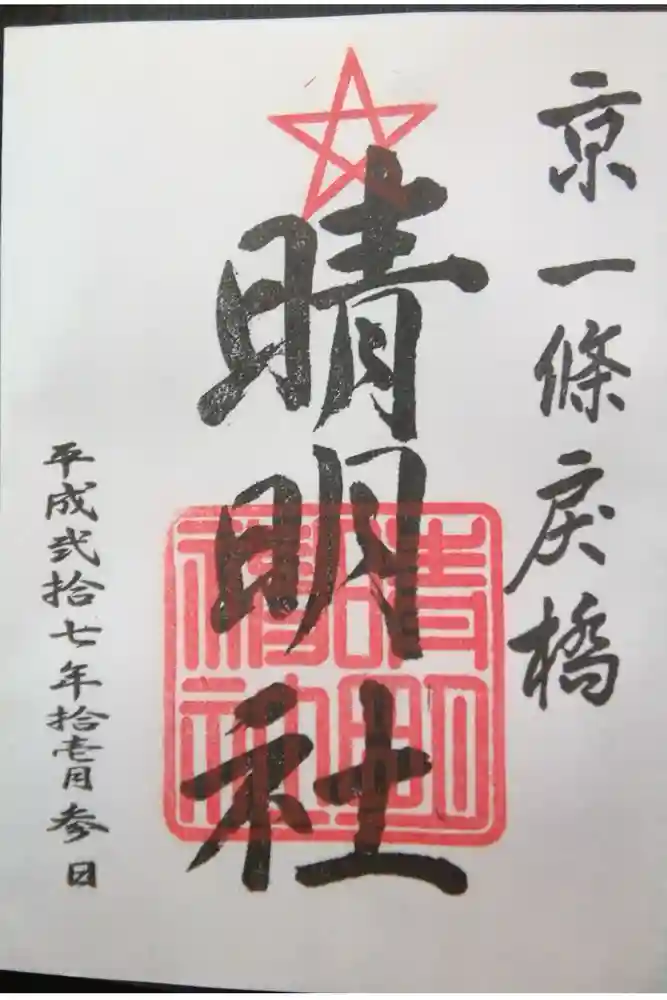 京一條戻橋
晴明社
晴明
神社
平成弐拾七年拾壱月参日